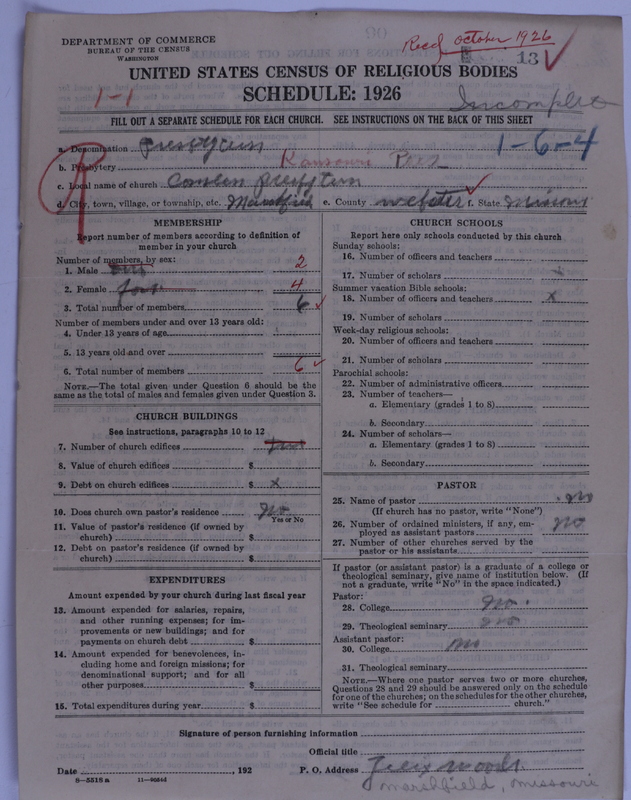 DEPARTMENT OF COMMERCE
BUREAU OF THE CENSUS
WASHINGTON
Recd October 1926
13
UNITED STATES CENSUS OF RELIGIOUS BODIES
1-1
SCHEDULE: 1926
Incomplete
FILL OUT A SEPARATE SCHEDULE FOR EACH CHURCH. SEE INSTRUCTIONS ON THE BACK OF THIS SHEET
1-6-4
a. Denomination
b. Presbytery
c. Local name of church
d. City, town, village, or township, etc. e. County Webster f. State Missouri
MEMBERSHIP
Report number of members according to definition of
member in your church
Number of members, by sex:
1. Male 2
2. Female four 4
3. Total number of members 6
Number of members under and over 13 years old:
4. Under 13 years of age
5. 13 years old and over
6. Total number of members 6
NOTE.—The total given under Question 6 should be the
same as the total of males and females given under Question 3.
CHURCH BUILDINGS
See instructions, paragraphs 10 to 12
7. Number of church edifices
8. Value of church edifices $
9. Debt on church edifices $ x
10. Does church own pastor's residence no
Yes or No
11. Value of pastor's residence (if owned by
church) $
12. Debt on pastor's residence (if owned by
church) $
EXPENDITURES
Amount expended by your church during last fiscal year
13. Amount expended for salaries, repairs,
and other running expenses; for im-
provements or new buildings; and for
payments on church debt $
14. Amount expended for benevolences, in-
cluding home and foreign missions; for
denominational support; and for all
other purposes $
15. Total expenditures during year $
CHURCH SCHOOLS
Report here only schools conducted by this church
Sunday schools:
16. Number of officers and teachers
17. Number of scholars x
Summer vacation Bible schools:
18. Number of officers and teachers x
19. Number of scholars
Week-day religious schools:
20. Number of officers and teachers
21. Number of scholars
Parochial schools:
22. Number of administrative officers
23. Number of teachers—
a. Elementary (grades 1 to 8)
b. Secondary
24. Number of scholars—
a. Elementary (grades 1 to 8)
b. Secondary
PASTOR
25. Name of pastor no
(If church has no pastor, write "None")
26. Number of ordained ministers, if any, em-
ployed as assistant pastors no
27. Number of other churches served by the
pastor or his assistants
If pastor (or assistant pastor) is a graduate of a college or
theological seminary, give name of institution below. (If
not a graduate, write "No" in the space indicated.)
Pastor:
28. College no.
29. Theological seminary no
Assistant pastor:
30. College no
31. Theological seminary
NOTE.—Where one pastor serves two or more churches,
Questions 28 and 29 should be answered only on the schedule
for one of the churches; on the schedules for the other churches,
write "See schedule for church."
Signature of person furnishing information
Official title
Date , 192 P. O. Address Felix Woods
8-5518a
marshfield, missouri